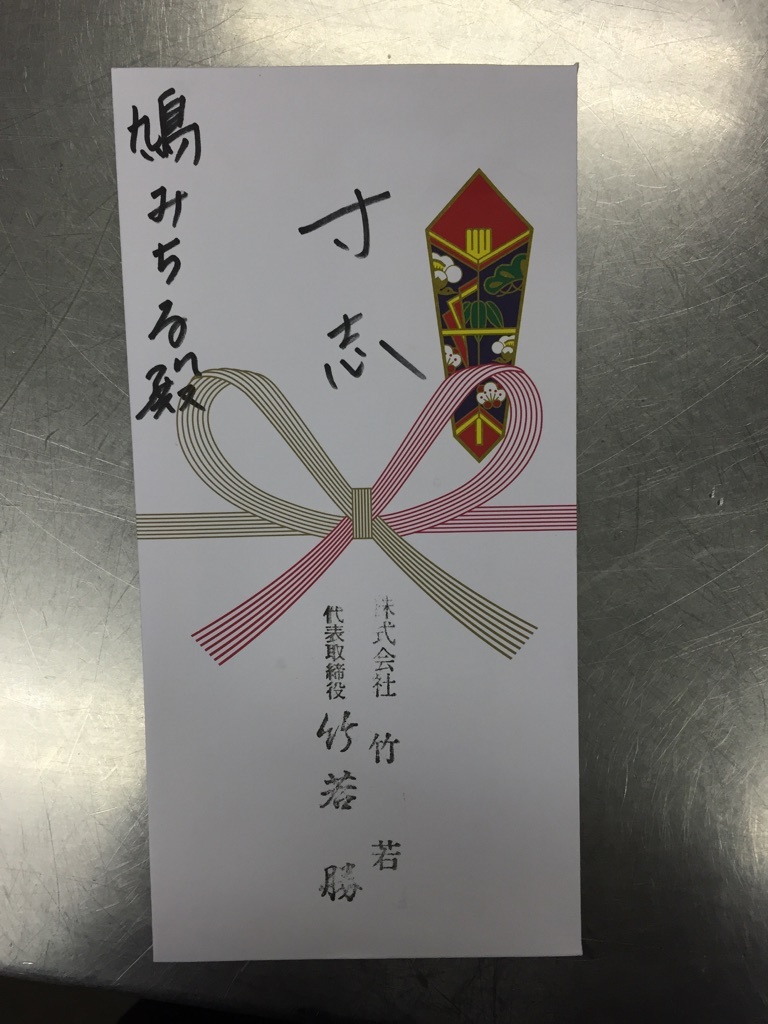 寸志
鳩みちる殿
株式会社 竹若
代表取締役 竹若 勝